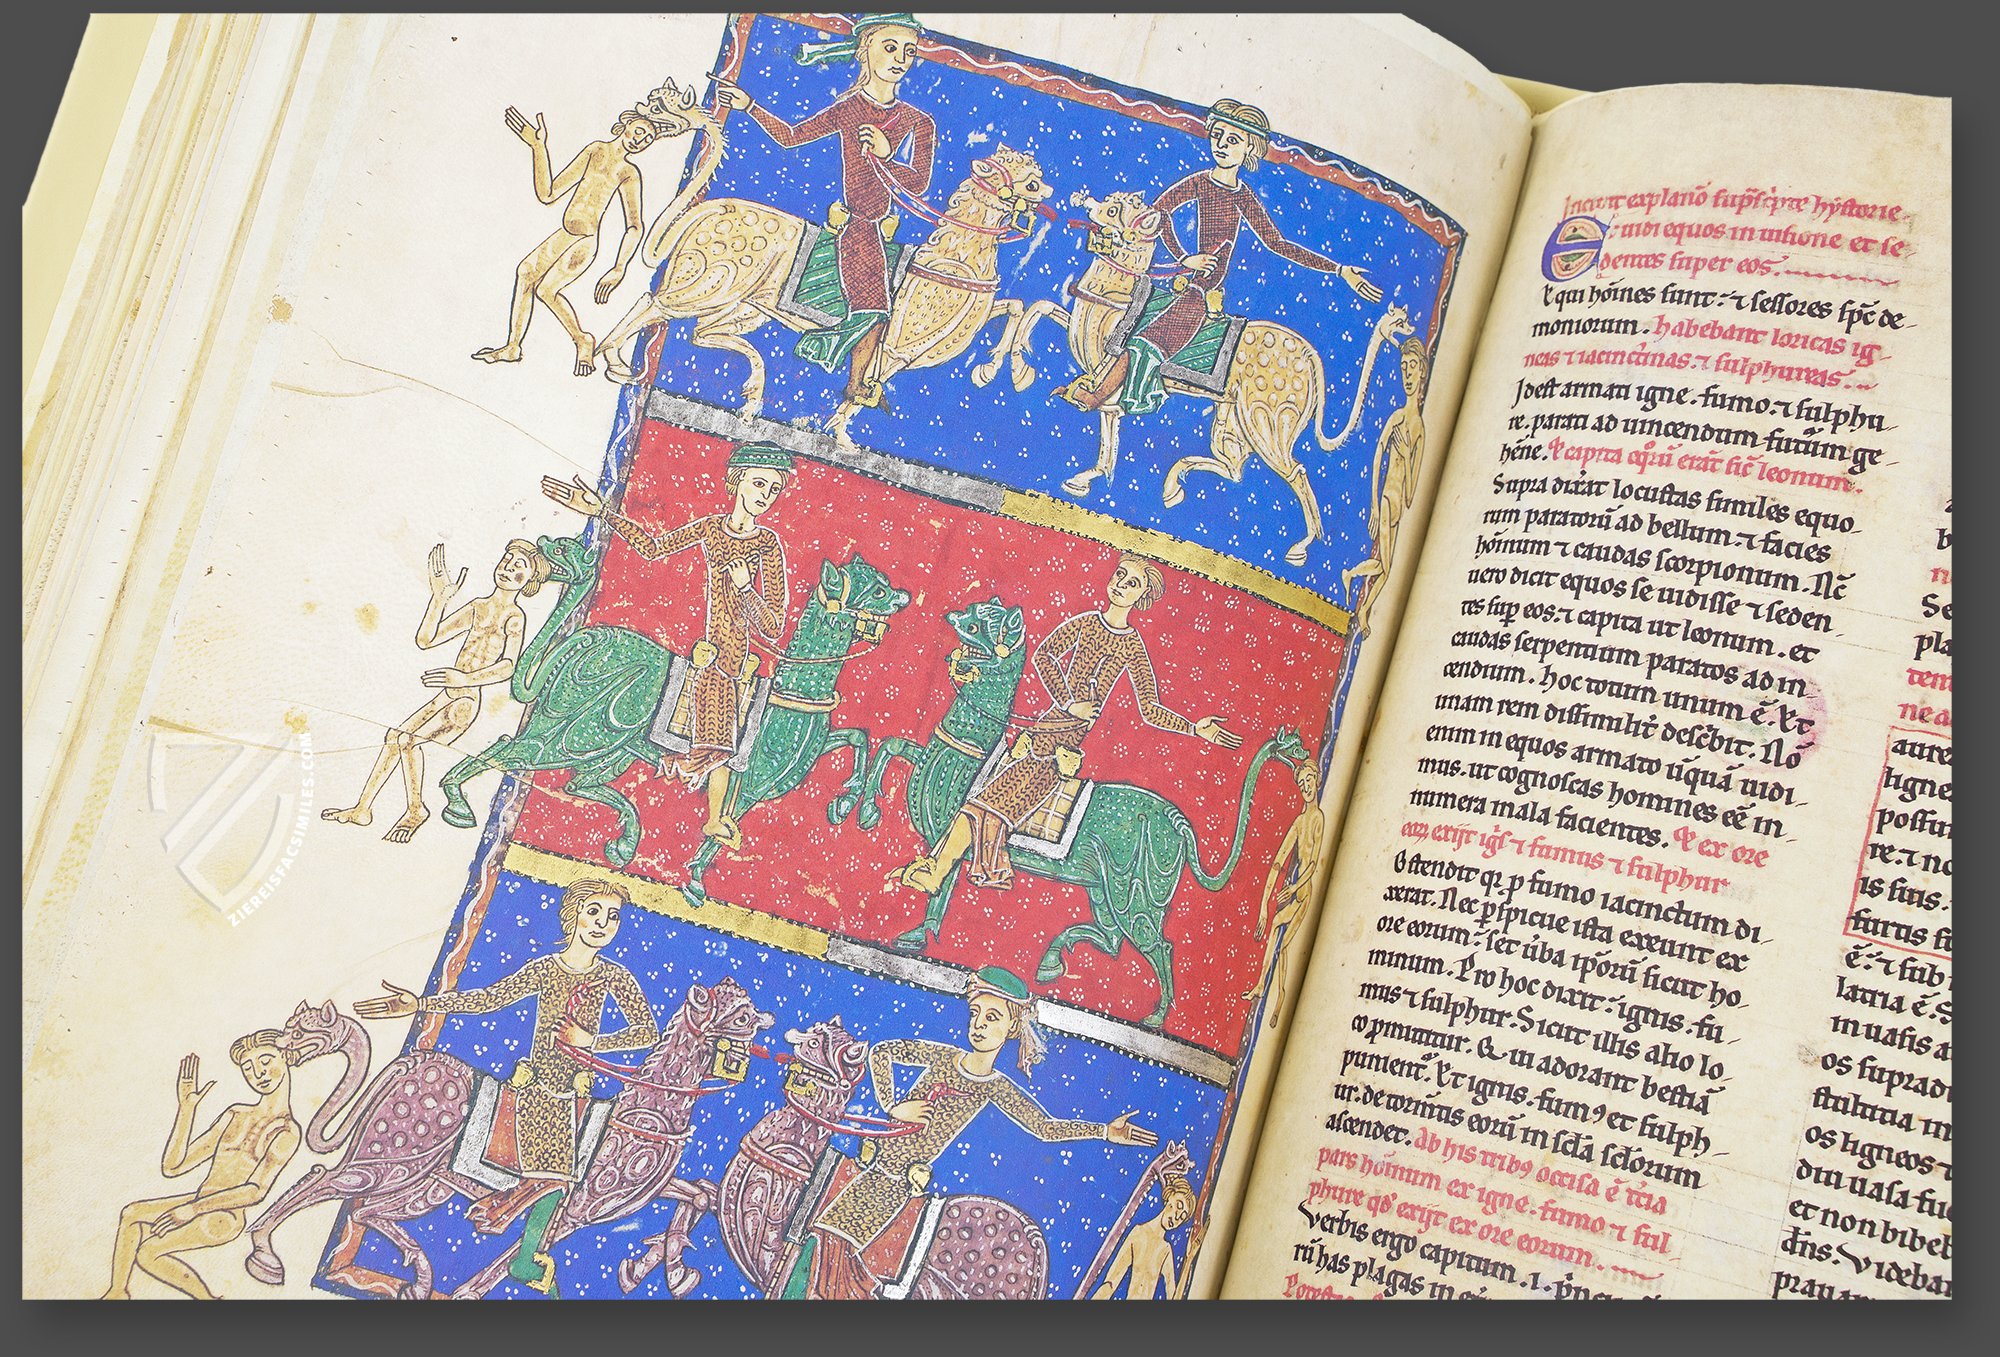 Incipit explanō sup̄scripte hystorie.
E: uidi equos in uisione et se-
dentes super eos.
Equi hōines sunt: ⁊ sessores sp̄c de-
moniorum. habebant loricas ig-
neas ⁊ iacinctinas. ⁊ sulphureas.
Idest armati igne. fumo. ⁊ sulphu
re. parati ad uincendum futūm ge-
hēne. Et capita eq̄rū erāt sic̄ leonum.
Supra dixat locustas similes equo-
rum paratorū ad bellum. ⁊ facies
hōminum ⁊ caudas scorpionum. Nc̄
uero dicit equos se uidisse ⁊ seden-
tes sup̱ eos. ⁊ capita ut leonum. et
caudas serpentium paratos ad in-
cendium. hoc totum unum ē. Et
unam rem dissimilit̄ desc̄bit. Nō
enim in equos armato uq̄uā uidi-
mus. ut cognoscas homines eē in
numera mala facientes. Et ex ore
eorū exijt ig̅s ⁊ fumus ⁊ sulphur
Ostendit qr̄ p̱ fumo iacinctum di-
xerat. Nec p̱spicue ista exeunt ex
ore eorum: set ūba ip̄orū sicut ho-
minum. Pro hoc dixit: ignis. fu-
mus ⁊ sulphur. Sicut illis alio lo-
co p̱mittitur. Q̄ui adorant bestiā
pumenť. Et ignis. fumꝰ et sulph-
ur. de tormētis eorū in sc̄la sc̄lorum
ascendet. Ab his tribꝰ occisa ē t̄cia
pars hōinum ex igne. fumo ⁊ sul
phure q̄d exijt ex ore eorum.
Verbis ergo capitum. i. p̄nci
rū has plagas in
b
n
Se
pla
tem
ne a
aure
ligne
possu
re. ⁊ no
is suis.
furtis su
ē. ⁊ sub
latria ē. S
in uasis a
os supradi
stultitia in
os ligneos ⁊
diu uasa fue
et non bibeb
dn̄s. Videba
praua
ZIEREISFACSIMILES.COM